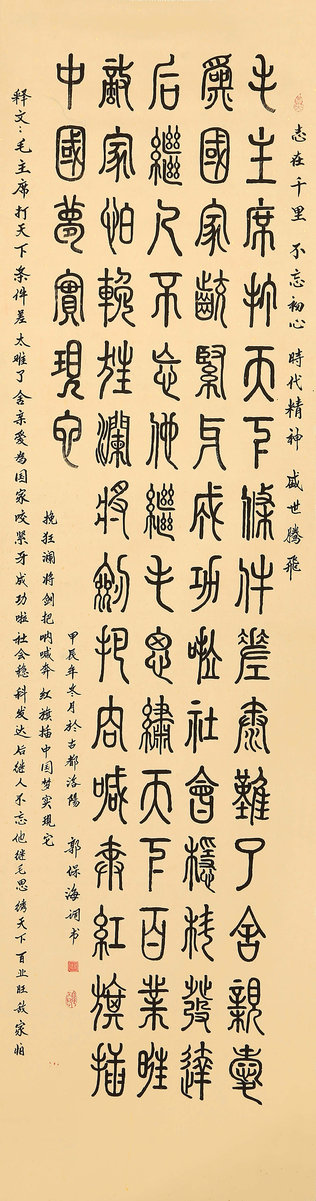 志在千里 不忘初心 時代精神 盛世腾飛
毛主席打天下條件差太難了舍親愛
為國家齩緊牙成功啦社會穩科發達
后繼人不忘他繼毛思繡天下百業旺
敵家怕輓狂瀾將劍把吶喊奔紅旗插
中國夢實現它
甲辰年冬月於古都洛陽 郭保海词书
释文:毛主席打天下条件差太难了舍亲爱为国家咬紧牙成功啦社会稳科发达后继人不忘他继毛思绣天下百业旺敌家怕
挽狂澜将剑把呐喊奔红旗插中国梦实现它